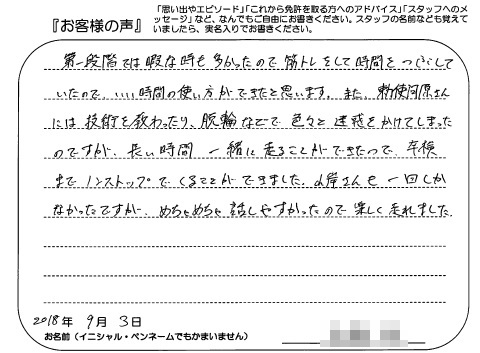 『お客様の声』
「思い出やエピソード」「これから免許を取る方へのアドバイス」「スタッフへのメ
ッセージ」など、なんでもご自由にお書きください。スタッフの名前なども覚えて
いましたら、実名入りでお書きください。
第一段階では暇な時も多かったので筋トレをして時間をつぶして
いたので、いい時間の使い方ができたと思います。また、勅使河原さん
には技術を教わったり、脱輪などで色々と迷惑をかけてしまった
のですが、長い時間 一緒に走ることができたので、卒検
までノンストップでくることができました。山岸さんも一回しか
なかったですが、めちゃめちゃ話しやすかったので楽しく走れました
2018年 9月 3日
お名前(イニシャル・ペンネームでもかまいません)